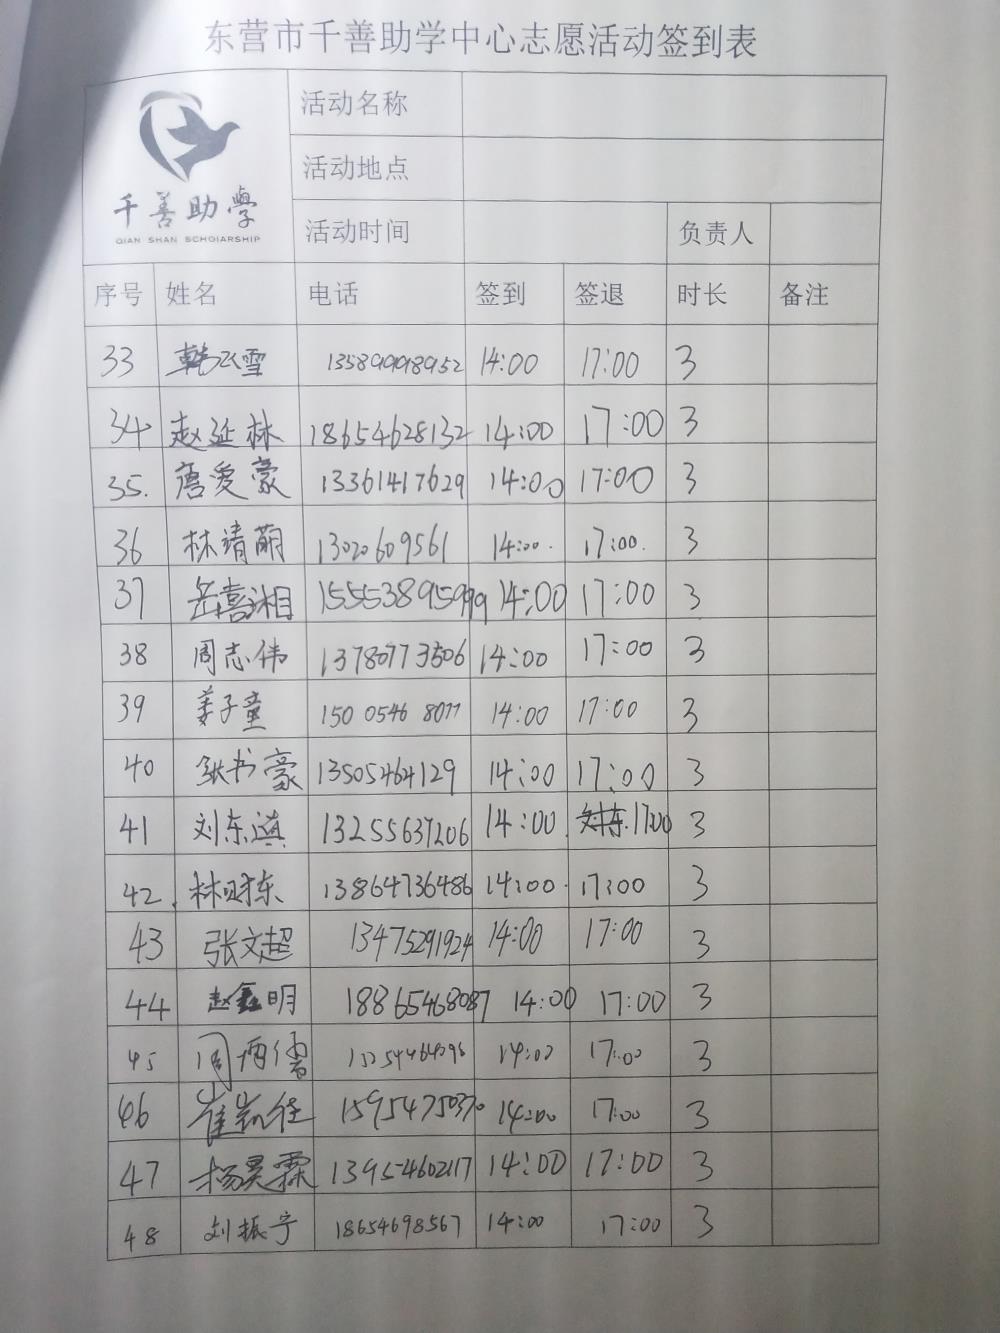 东营市千善助学中心志愿活动签到表
千善助學
QIAN SHAN SCHOLARSHIP
活动名称
活动地点
活动时间 负责人
序号 姓名 电话 签到 签退 时长 备注
33 韩飞雪 14:00 17:00 3
34 赵延林 18654628132 14:00 17:00 3
35. 唐爱豪 13361417629 14:00 17:00 3
36 林靖萌 13020609561 14:00. 17:00. 3
37 岳喜湘 14:00 17:00 3
38 周志伟 13780773506 14:00 17:00 3
39 姜子童 150 0546 8077 14:00 17:00 3
40 张书豪 13505464129 14:00 17:00 3
41 刘东滇 13255637206 14:00 17:00 3
42. 林时东 13864736486 14:00. 17:00 3
43 张文超 13475291924 14:00 17:00 3
44 赵鑫明 18865468087 14:00 17:00 3
45 周 14:00 17:00 3
46 崔凯佳 15954750370 14:00 17:00 3
47 杨昊霖 13954602117 14:00 17:00 3
48 刘振宁 18654698567 14:00 17:00 3